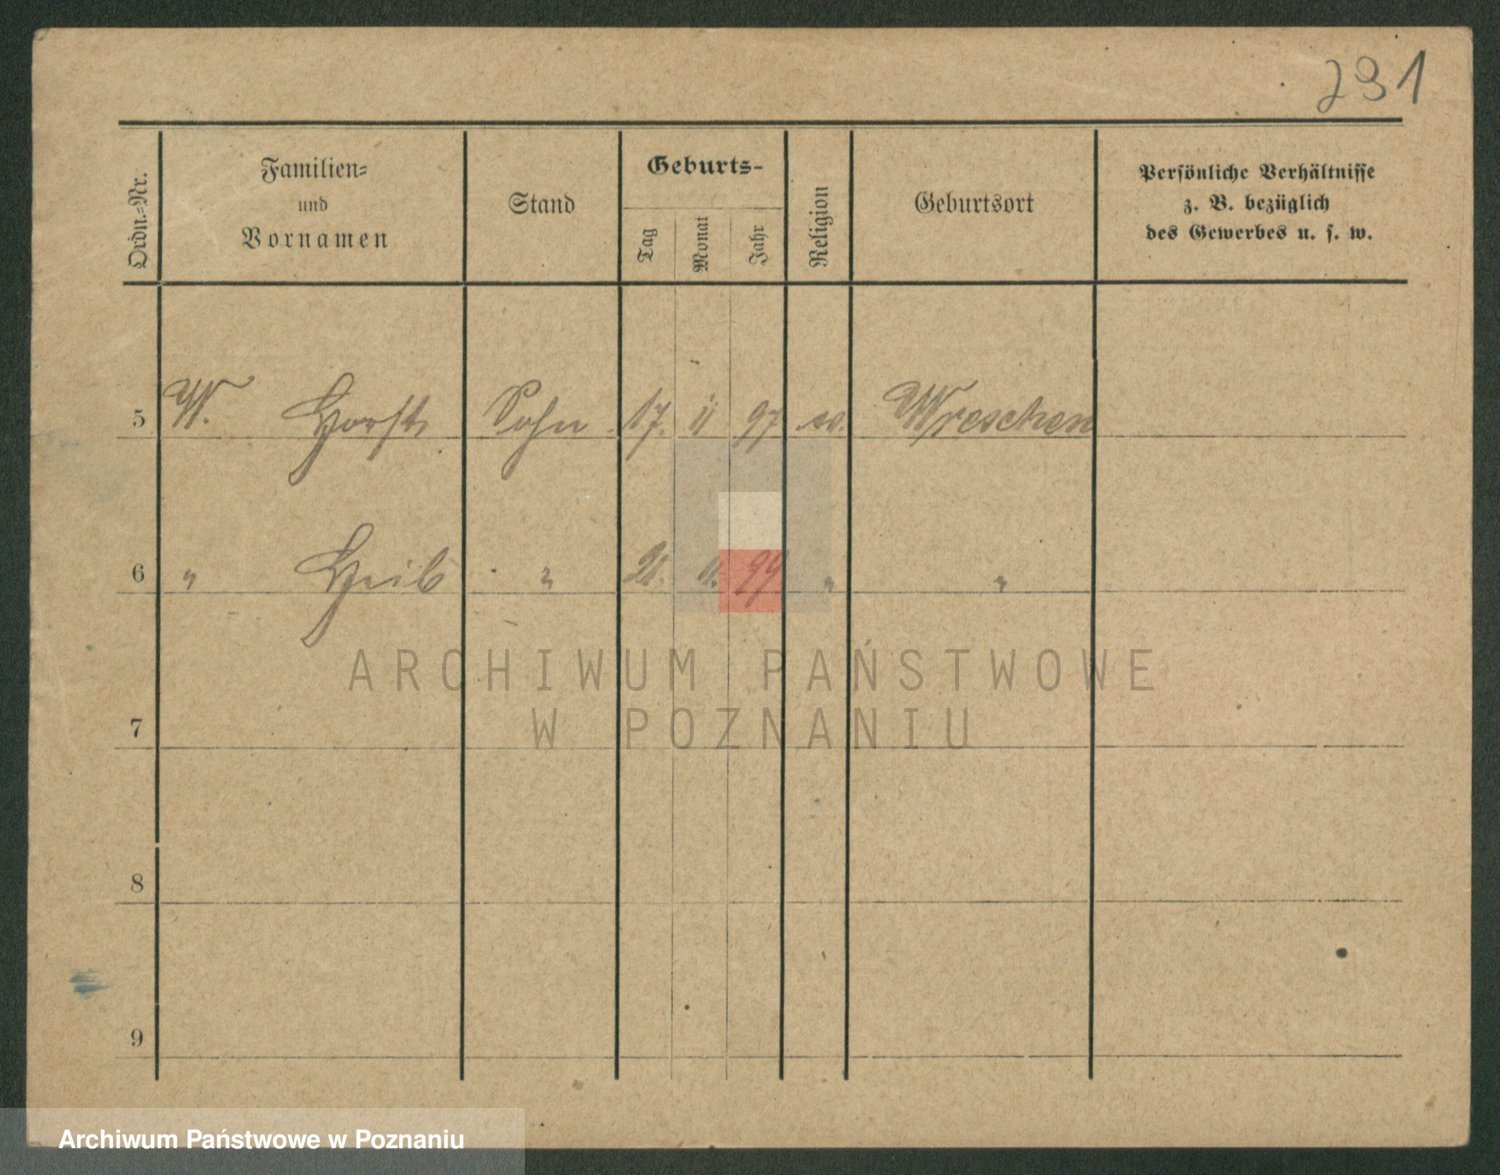 291
Ordn.-Nr.
Familien-
und
Vornamen
Stand
Geburts-
Tag
Monat
Jahr
Religion
Geburtsort
Persönliche Verhältnisse
z. B. bezüglich
des Gewerbes u. s. w.
5 W. Horst Sohn 17. 11 97 ev. Wreschen
6 " " 21. 11. 99 " "
ARCHIWUM PAŃSTWOWE
W POZNANIU
7
8
9
Archiwum Państwowe w Poznaniu